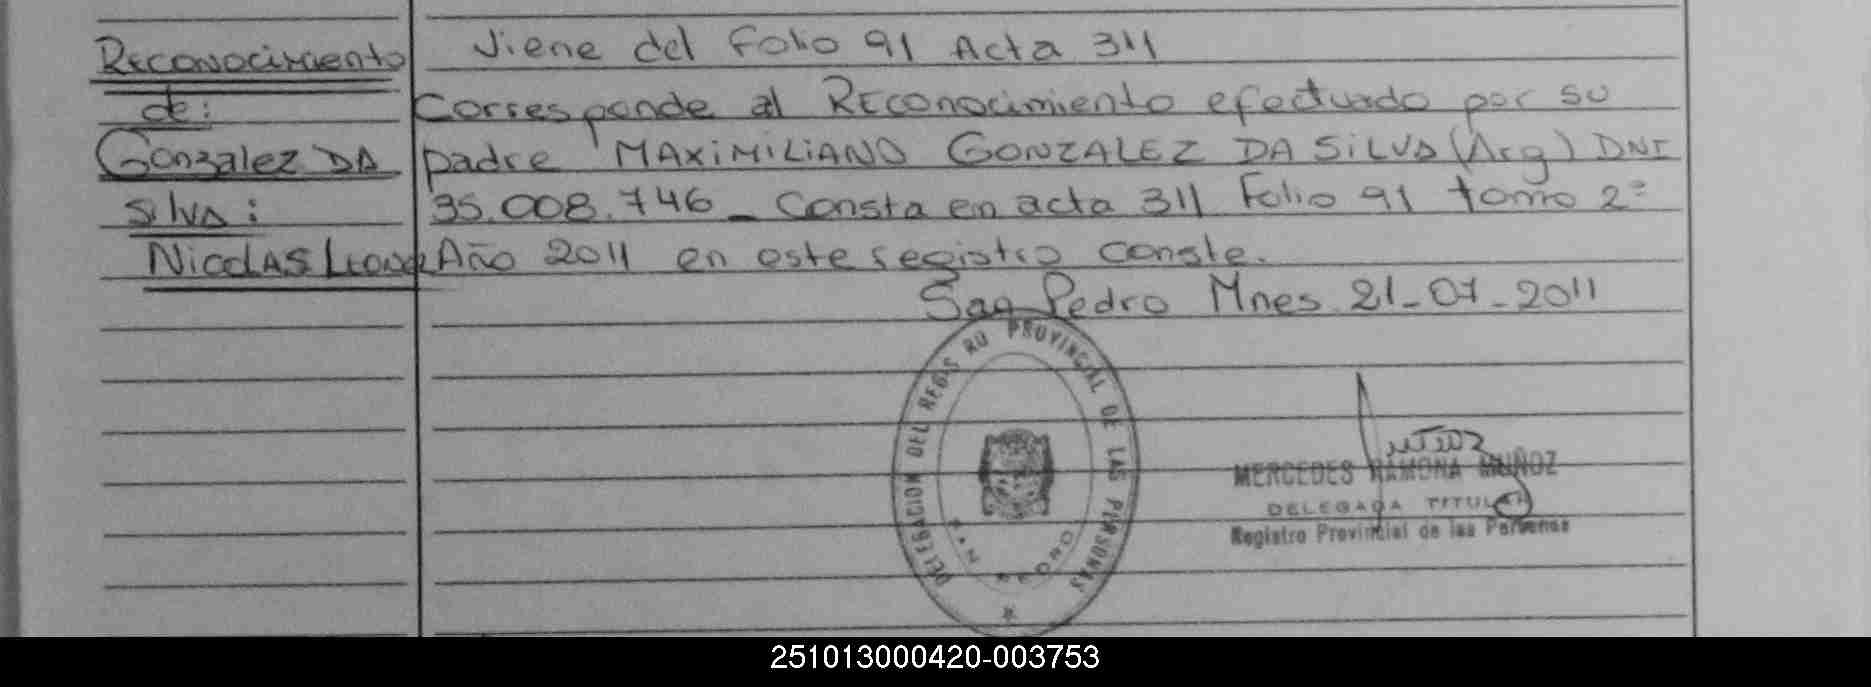 Reconocimiento
de:
Gonzalez DA
Silva:
Nicolas
Viene del Folio 91 Acta 311
Corresponde al Reconocimiento efectuado por su
padre MAXIMILIANO GONZALEZ DA SILVA (Arg) DNI
35.008.746_ Consta en acta 311 Folio 91 tomo 2º
Año 2011 en este registro Conste.
San Pedro Mnes. 21-07-2011
DELEGACION DEL REGIS RO PROVINCIAL DE LAS PERSONAS
MERCEDES RAMONA MUÑOZ
DELEGADA TITULAR
Registro Provincial de las Personas
251013000420-003753